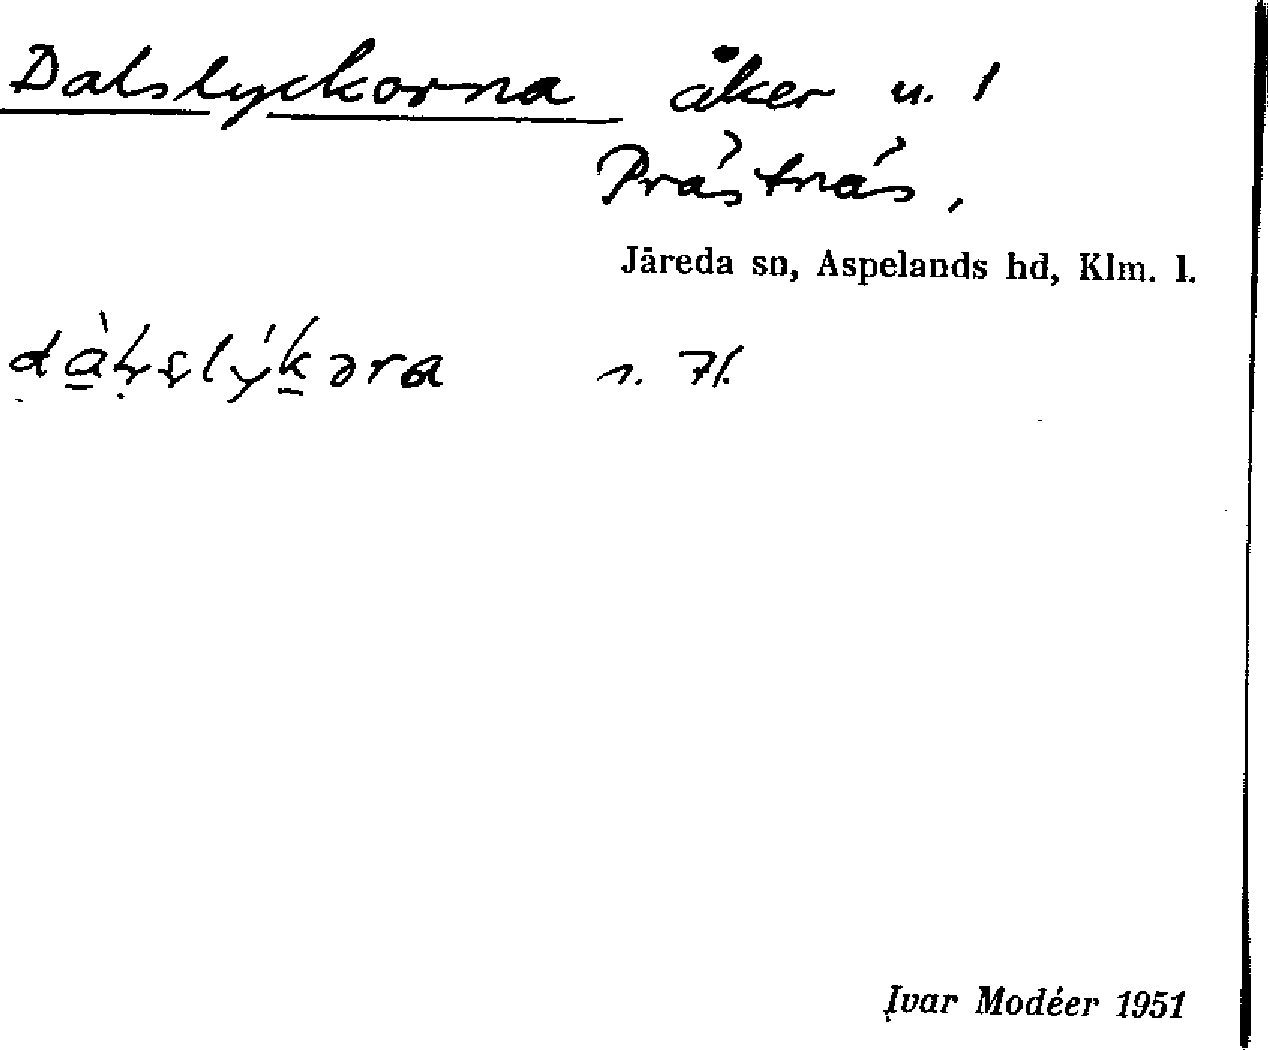 Dalslyckorna åker u. 1
Prästnäs,
Järeda sn, Aspelands hd, Klm. l.
s. 71.
Ivar Modéer 1951